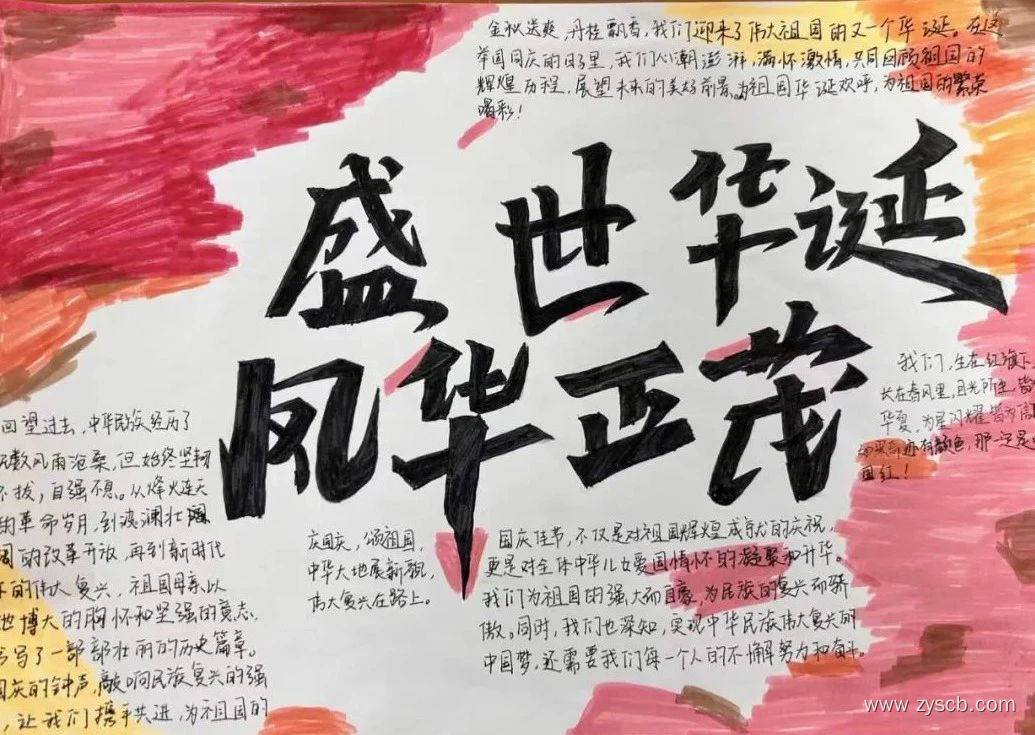 金秋送爽，丹桂飘香，我们迎来了伟大祖国的又一个华诞。在这
举国同庆的日子里，我们心潮澎湃，满怀激情，共同回顾祖国的
辉煌历程，展望未来的美好前景，为祖国华诞欢呼，为祖国的繁荣
喝彩！
盛世华诞
风华正茂
我们，生在红旗下，
长在春风里，目光所至，皆
华夏，为星闪耀皆为信
亦有颜色，那一定是
国红！
回望过去，中华民族经历了
无数风雨沧桑，但始终坚韧
不拔，自强不息。从烽火连天
的革命岁月，到波澜壮阔
的改革开放，再到新时代
的伟大复兴，祖国母亲以
她博大的胸怀和坚强的意志，
书写了一部部壮丽的历史篇章。
国庆的钟声，敲响民族复兴的强
，让我们携手共进，为祖国的
庆国庆，颂祖国，
中华大地展新貌，
伟大复兴在路上。
国庆佳节，不仅是对祖国辉煌成就的庆祝，
更是对全体中华儿女爱国情怀的凝聚和升华。
我们为祖国的强大而自豪，为民族的复兴而骄
傲。同时，我们也深知，实现中华民族伟大复兴的
中国梦，还需要我们每一个人的不懈努力和奋斗。
www.zyscb.com